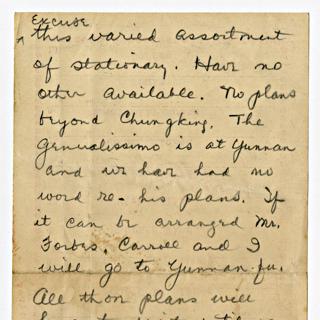 Excuse
this varied assortment
of stationary. Have no
other available. No plans
beyond Chungking. The
Generalissimo is at Yunnan
and we have had no
word re- his plans. If
it can be arranged Mr.
Forbes, Carroll and I
will go to Yunnan-fu.
All thon plans will